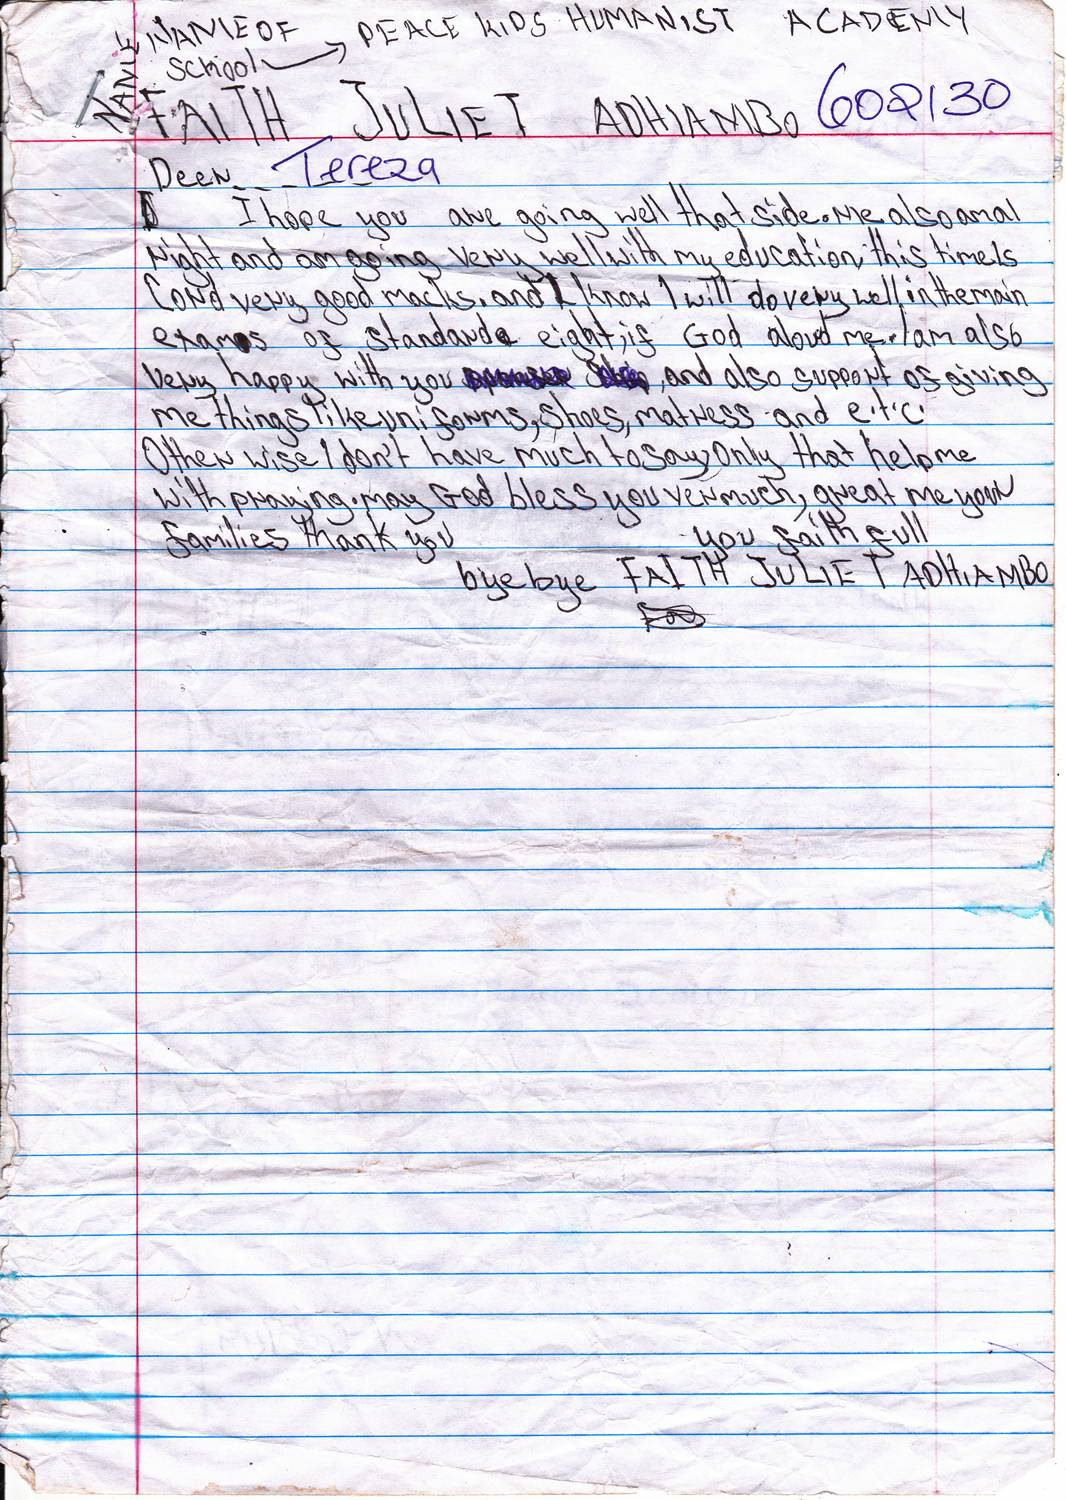 NAME OF PEACE KIDS HUMANIST ACADEMY
School
NAME
FAITH JULIET ADHIAMBO 602130
Deer Tereza
I hope you are going well that side. Me also am al
right and am going very well with my education, this time Is
Cord very good macks. and I know I will do very well in the main
exams of standard eight, if God aloud me. I am also
very happy with you , and also support of giving
me things like uniforms, shoes, matress and e.t.c.
Other wise I don't have much to say, Only that help me
with praying. may God bless you very much, great me your
families thank you you faith full
bye bye FAITH JULIET ADHIAMBO